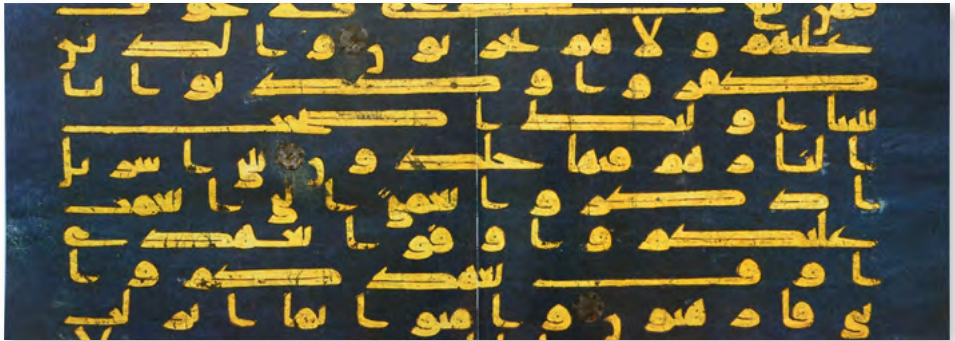 خوف
عليهم ولا هم يحزنون والذين
كفروا وكذبوا بايا
تنا اولئك اصحب
النار هم فيها خلدون يبني اسريل
اذكروا نعمتي التي انعمت
عليكم واوفوا بعهدي
اوف بعهدكم وا
يي فارهبون وامنوا بما انزلت